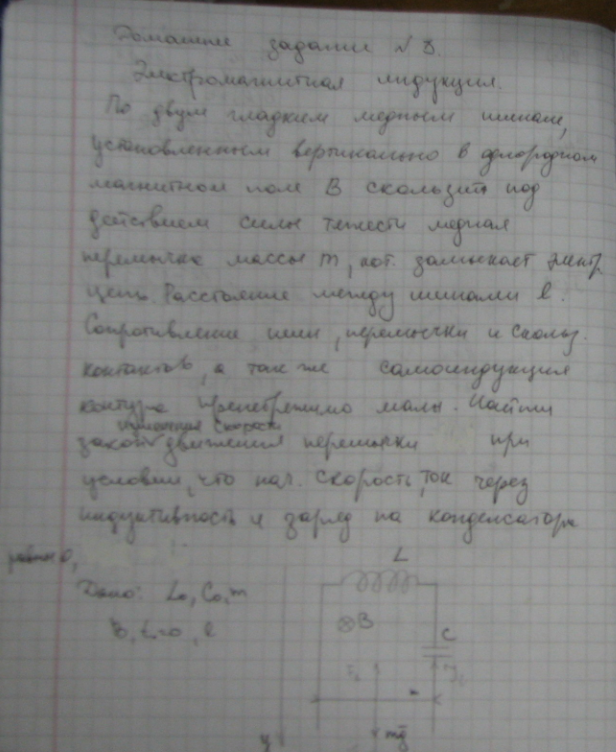 Домашнее задание №8.
Электромагнитная индукция.
По двум гладким медным шинам,
установленным вертикально в однородном
магнитном поле B скользит под
действием силы тяжести медная
перемычка массы m, кот. замыкает электр.
цепь. Расстояние между шинами l.
Сопротивление шин, перемычки и скольз.
контактов, а так же самоиндукция
контура пренебрежимо малы. Найти
изменения скорости
закон движения перемычки при
условии, что нач. скорость, ток через
индуктивность и заряд на конденсаторе
равны 0,
L
Дано: L₀, C₀, m
⊗B
C
B, , l
y
mg